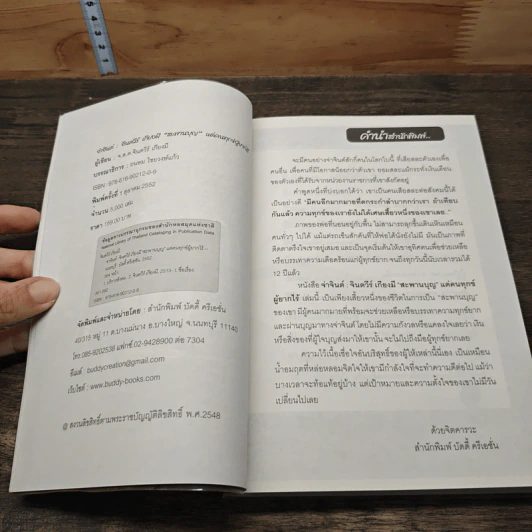 จ่าจินต์ : จินตวีร์ เกียงมี "สะพานบุญ" แด่คนทุกข์ผู้ยากไร้
ผู้เขียน : จ.ส.ต.จินตวีร์ เกียงมี
บรรณาธิการ :
ISBN : 978-616-90212-0-9
พิมพ์ครั้งที่ 1 ตุลาคม 2552
จำนวน 5,000 เล่ม
ราคา 159.00 บาท
ข้อมูลทางบรรณานุกรมของสำนักหอสมุดแห่งชาติ
National Library of Thailand Cataloging in Publication Data
จินตวีร์ เกียงมี
จัดพิมพ์และจำหน่ายโดย : สำนักพิมพ์ บัดดี้ ครีเอชั่น
40/313 หมู่ 11 ต.บางแม่นาง อ.บางใหญ่ จ.นนทบุรี 11140
โทร.085-9092538 แฟกซ์.02-9428900 ต่อ 7304
อีเมล์ : buddycreation@gmail.com
เว็บไซต์ : www.buddy-books.com
@ สงวนลิขสิทธิ์ตามพระราชบัญญัติลิขสิทธิ์ พ.ศ.2548
คำนำสำนักพิมพ์...
จะมีคนอย่างจ่าจินต์สักกี่คนในโลกใบนี้ ที่เสียสละตัวเองเพื่อ
คนอื่น เพื่อคนที่มีโอกาสน้อยกว่าตัวเขา ยอมสละแม้กระทั่งเงินเดือน
ของตัวเองที่ได้รับจากหน่วยงานราชการที่เขาสังกัดอยู่
คำพูดหนึ่งที่บ่งบอกได้ว่า เขาเป็นคนเสียสละต่อสังคมนี้ได้
เป็นอย่างดี "มีคนอีกมากมายที่ตกระกำลำบากกว่าเรา ถ้าเทียบ
กันแล้ว ความทุกข์ของเรายังไม่ได้เศษเสี้ยวหนึ่งของเขาเลย.."
ภาพของพ่อที่นอนอยู่กับพื้น ไม่สามารถลุกขึ้นเดินเหินเหมือน
คนทั่วๆ ไปได้ แม้แต่กระเช้นสักคันที่ให้พ่อได้นั่งยังไม่มี มันเป็นภาพที่
ติดตาตรึงใจเขาอยู่เสมอ และเป็นจุดเริ่มต้นให้เขาอุทิศตนเพื่อช่วยเหลือ
หรือบรรเทาความเดือดร้อนแก่ผู้ทุกข์ยาก จนถึงทุกวันนี้นับเวลารวมได้
12 ปีแล้ว
หนังสือ จ่าจินต์ : จินตวีร์ เกียงมี "สะพานบุญ" แด่คนทุกข์
ผู้ยากไร้ เล่มนี้ เป็นเพียงเสี้ยวหนึ่งของชีวิตในการเป็น "สะพานบุญ"
ของเขา มีผู้คนมากมายที่พร้อมจะช่วยเหลือหรือบรรเทาความทุกข์ยาก
และผ่านบุญมาทางจ่าจินต์ โดยไม่มีความกังวลหรือแคลงใจเลยว่า เงิน
หรือสิ่งของที่ผู้ใจบุญส่งมาให้เขานั้น จะไม่ไปถึงมือผู้ทุกข์ยากเลย
ความไว้เนื้อเชื่อใจอันบริสุทธิ์ของผู้ให้เหล่านี้นี่เอง เป็นเหมือน
น้ำอมฤตที่หล่อหลอมจิตใจให้เขามีกำลังใจที่จะทำความดีต่อไป แม้ว่า
บางเวลาจะท้อแท้อยู่บ้าง แต่เป้าหมายและความตั้งใจของเขาไม่มีวัน
เปลี่ยนไปเลย
ด้วยจิตคารวะ
สำนักพิมพ์ บัดดี้ ครีเอชั่น